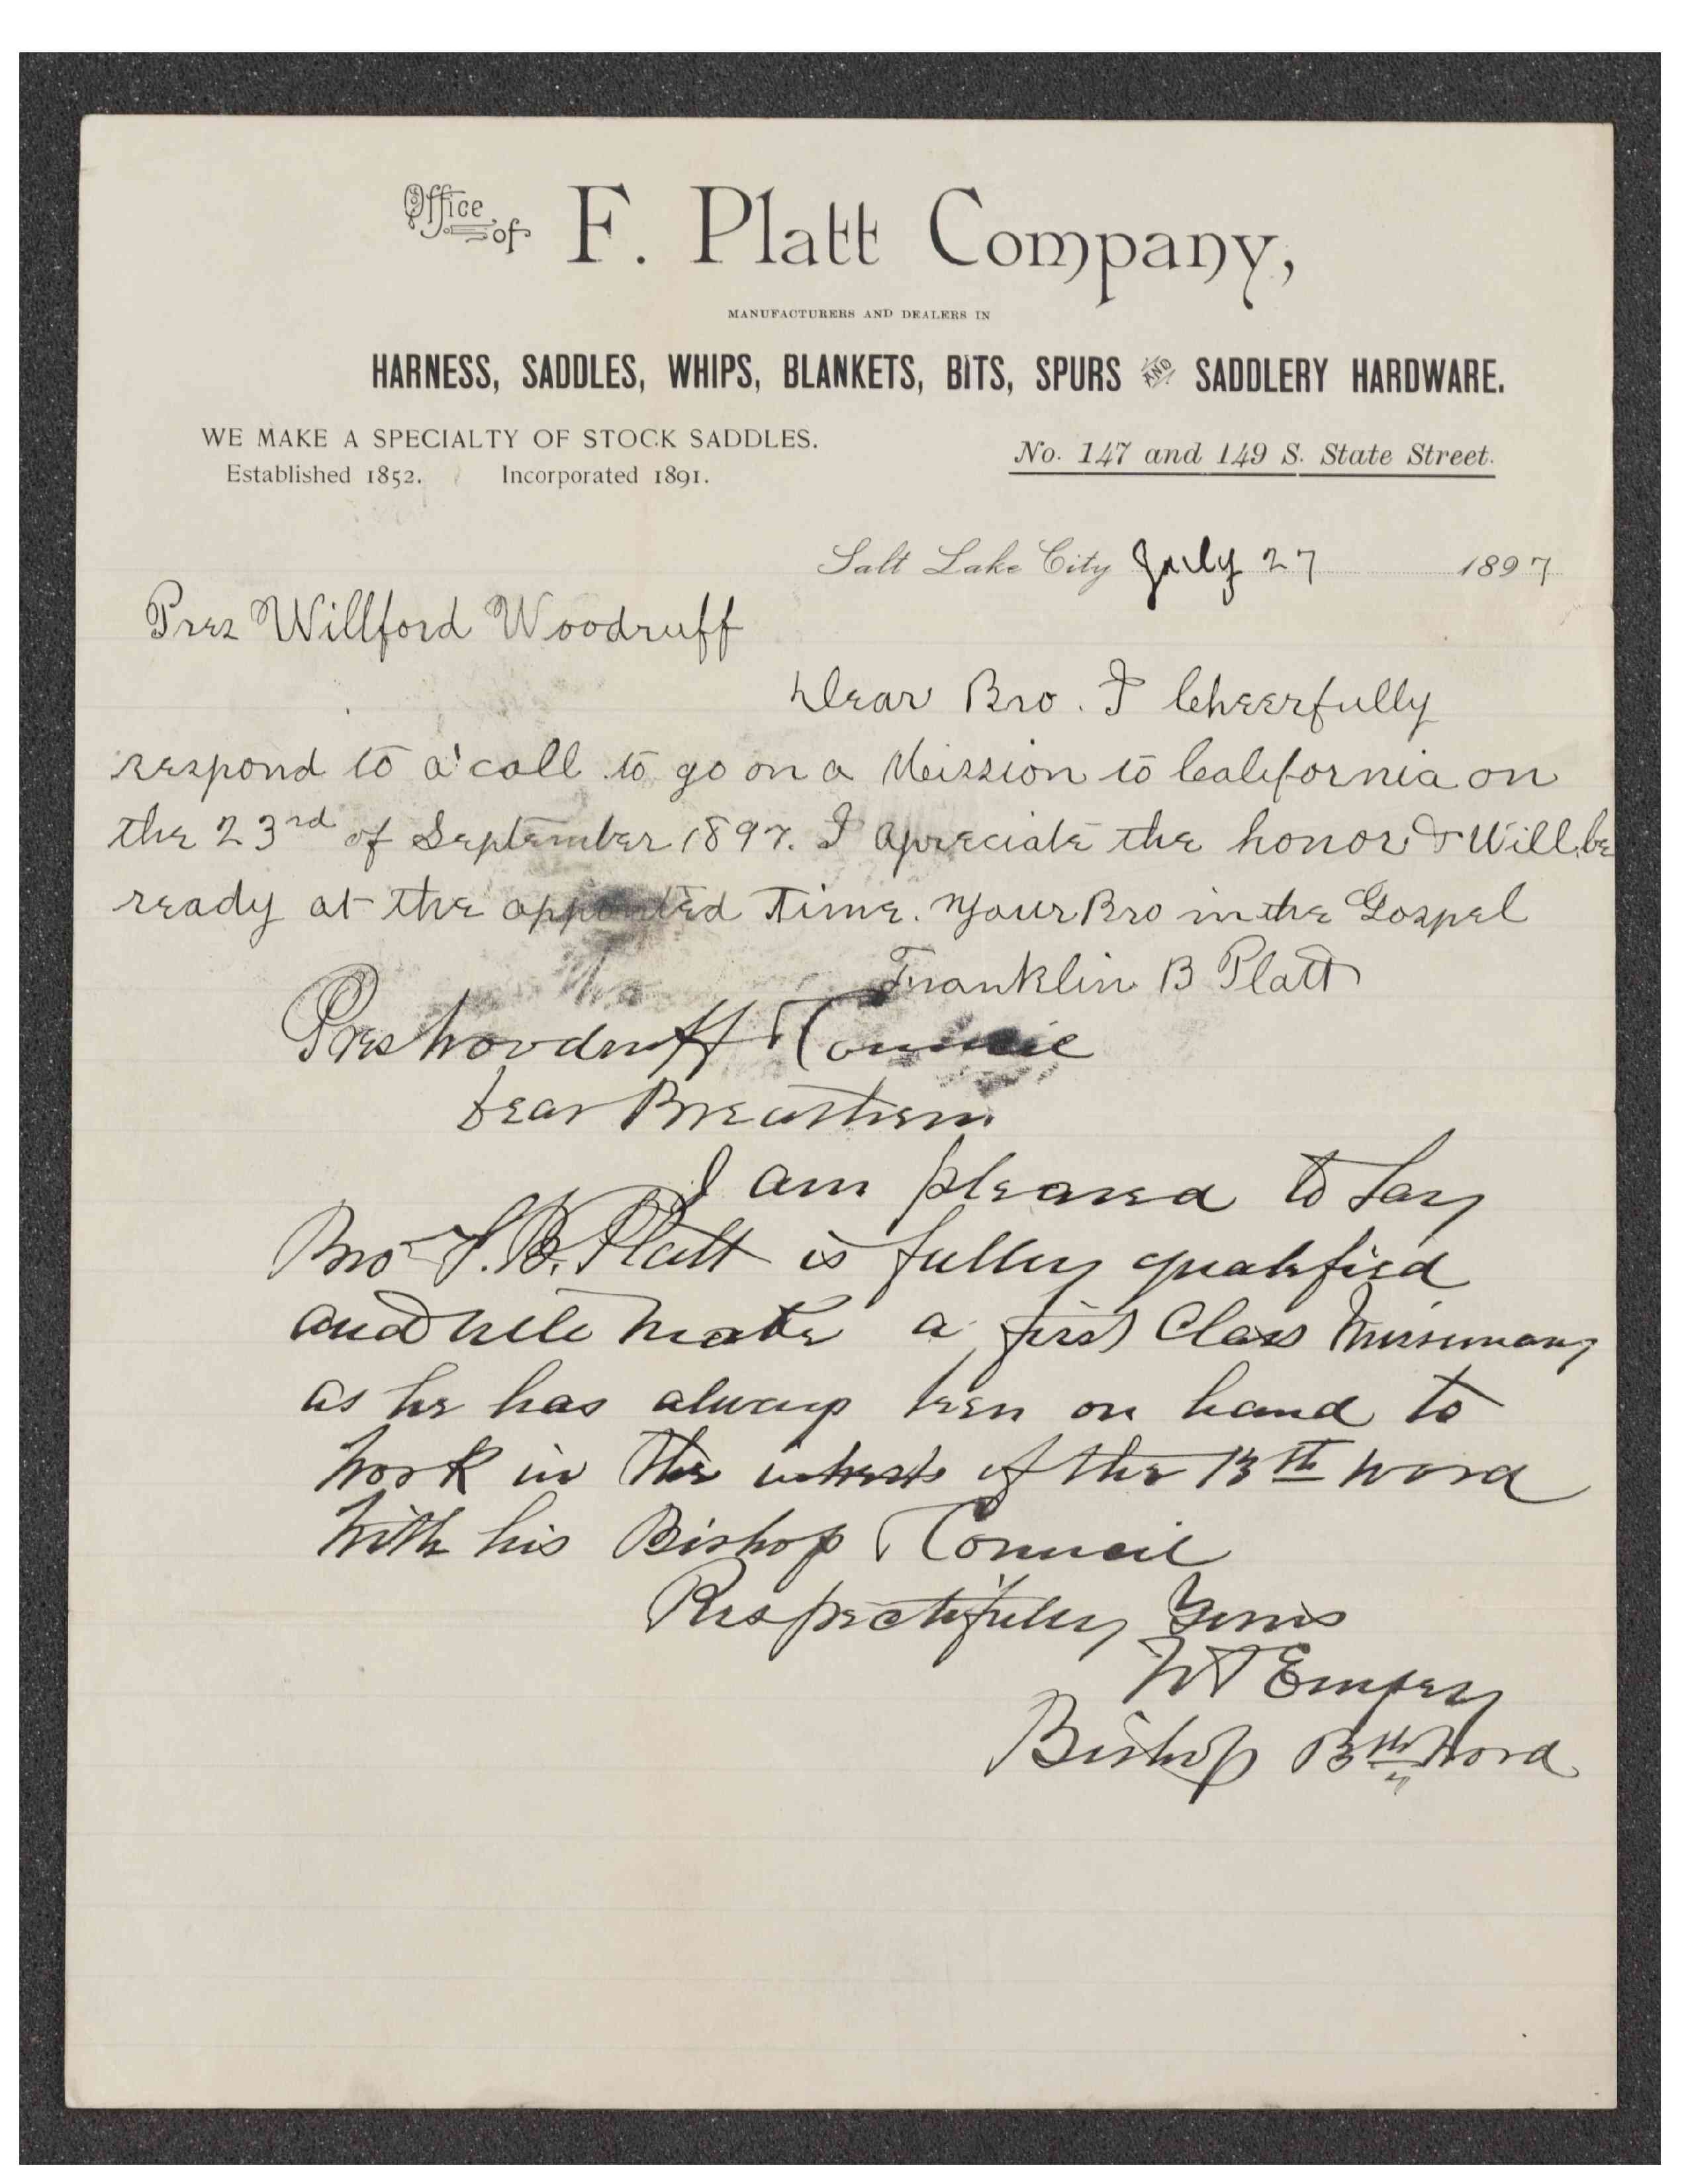 Office of F. Platt Company,
MANUFACTURERS AND DEALERS IN
HARNESS, SADDLES, WHIPS, BLANKETS, BITS, SPURS AND SADDLERY HARDWARE.
WE MAKE A SPECIALTY OF STOCK SADDLES.
Established 1852. Incorporated 1891.
No. 147 and 149 S. State Street.
Salt Lake City July 27 1897
Pres Willford Woodruff
Dear Bro. I Cheerfully
respond to a call to go on a Mission to California on
the 23rd of September 1897. I apreciate the honor & Will be
ready at the appointed Time. Your Bro in the Gospel
Franklin B Platt
Pres Woodruff & Council
Dear Breathern
I am pleased to say
Bro F. B. Platt is fully qualified
and will make a first Class Missionary
as he has always been on hand to
work in the interests of the 13th Ward
with his Bishop & Council
Respectfully Yours
N A Empey
Bishop 13th Ward